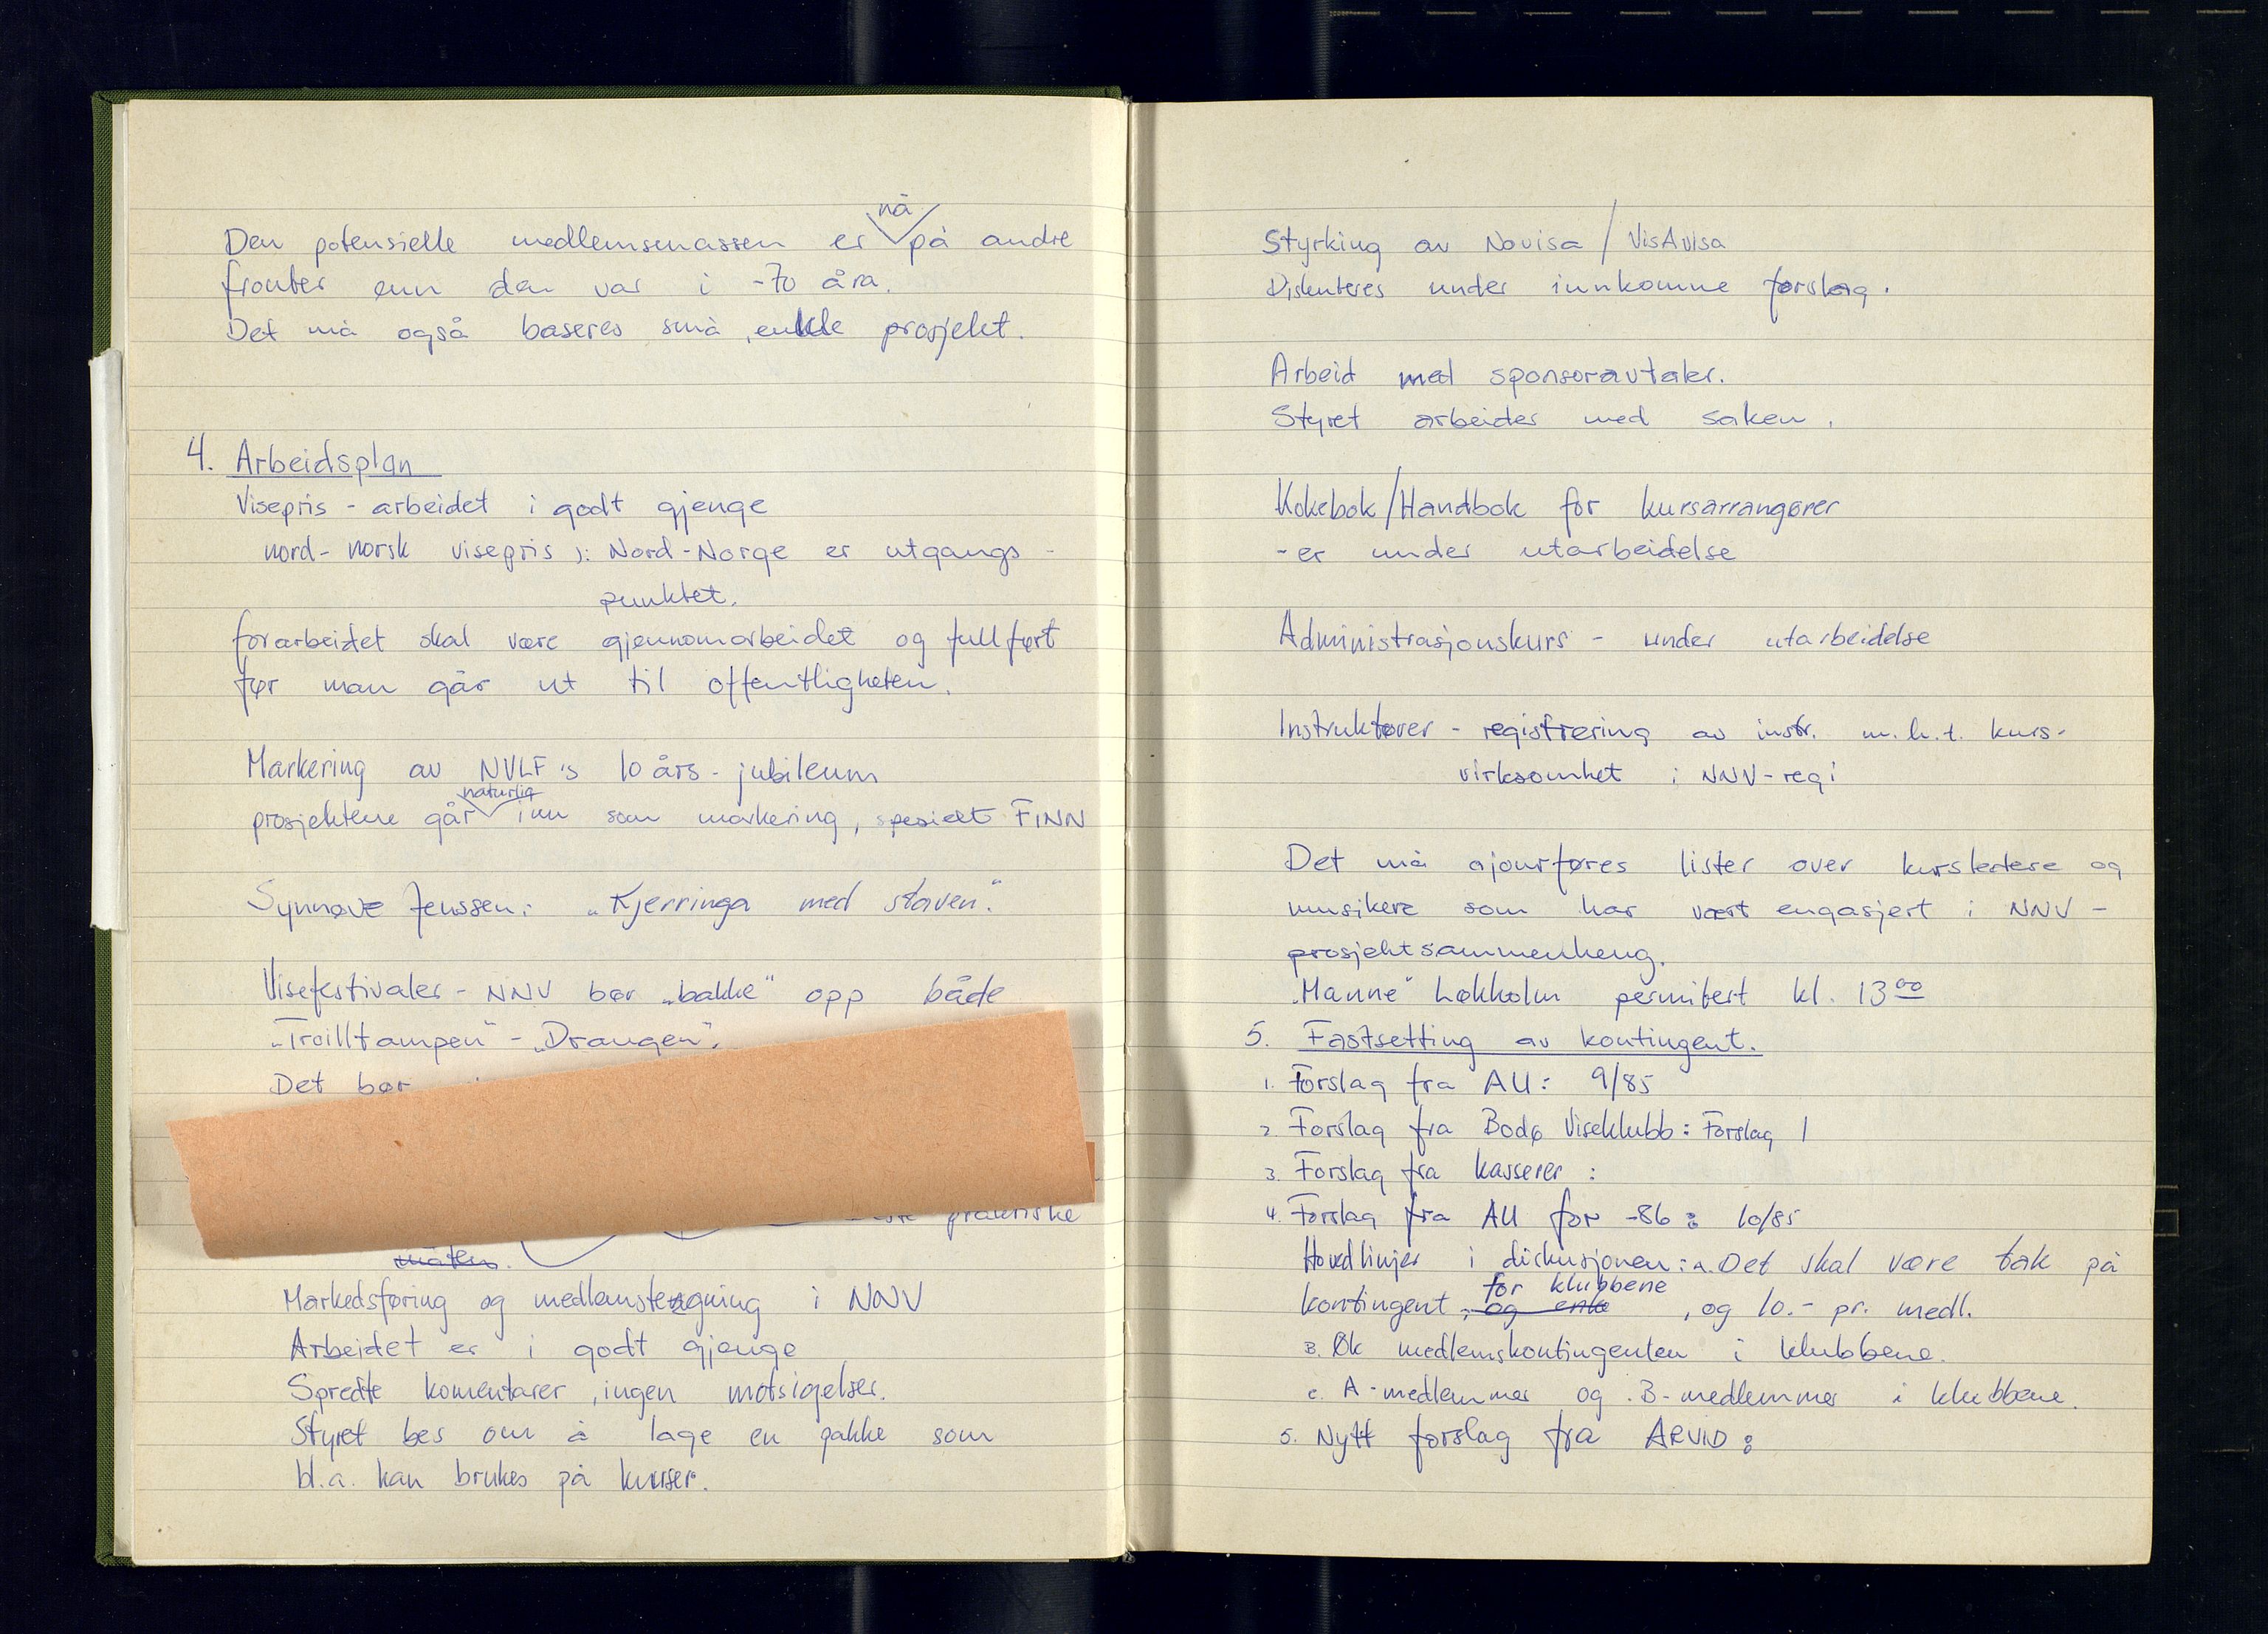 Den potensielle medlemsmassen er nå på andre
fronter enn den var i -70 åra.
Det må også baseres små, enkle prosjekt.
4. Arbeidsplan
Visepris - arbeidet i godt gjenge
nord-norsk visepris ɔ: Nord-Norge er utgangs-
punktet.
forarbeidet skal være gjennomarbeidet og fullført
før man går ut til offentligheten.
Markering av NVLF's 10 års-jubileum
prosjektene går naturlig inn som markering, spesielt FINN
Synnøve Jenssen: "Kjerringa med staven".
Visefestivaler - NNV bør "bakke" opp både
"Troilltampen" - "Draugen".
Det bør
praktiske
måten.
Markedsføring og medlemstegning i NNV
Arbeidet er i godt gjenge
Spredte komentarer, ingen motsigelser.
Styret bes om å lage en pakke som
bl.a. kan brukes på kurser.
Styrking av Novisa / VisAvisa
Diskuteres under innkomne forslag.
Arbeid med sponsoravtaler.
Styret arbeider med saken.
Kokebok/Handbok for kursarrangører
- er under utarbeidelse
Administrasjonskurs - under utarbeidelse
Instruktører - registrering av instr. m.h.t. kurs-
virksomhet i NNV-regi
Det må ajourføres lister over kursledere og
musikere som har vært engasjert i NNV-
prosjektsammenheng.
"Manne" Løkholm permitert kl. 13 00
5. Fastsetting av kontingent.
1. Forslag fra AU: 9/85
2. Forslag fra Bodø Viseklubb: Forslag 1
3. Forslag fra kasserer :
4. Forslag fra AU for -86: 10/85
Hovedlinjer i diskusjonen: A. Det skal være tak på
for klubbene
kontingent, og enke , og 10.- pr. medl.
B. Øk medlemskontingenten i klubbene.
C. A-medlemmer og B-medlemmer i klubbene.
5. Nytt forslag fra ARVID: